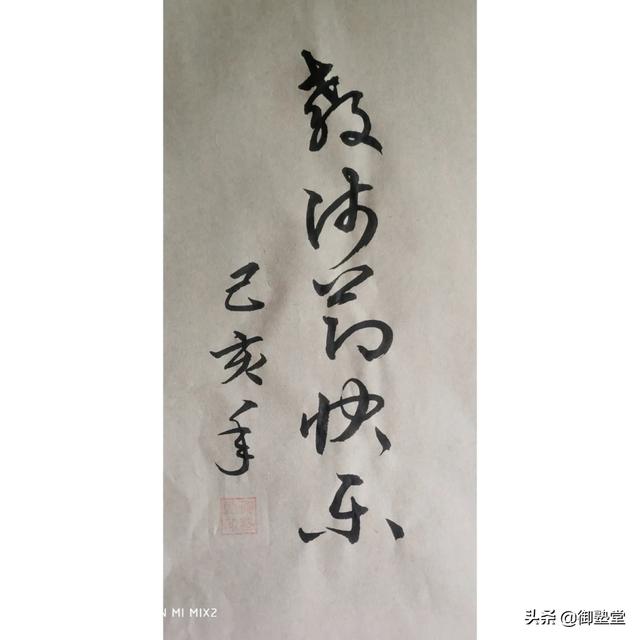 教师节快乐
己亥年
N MI MIX2
头条 @御塾堂